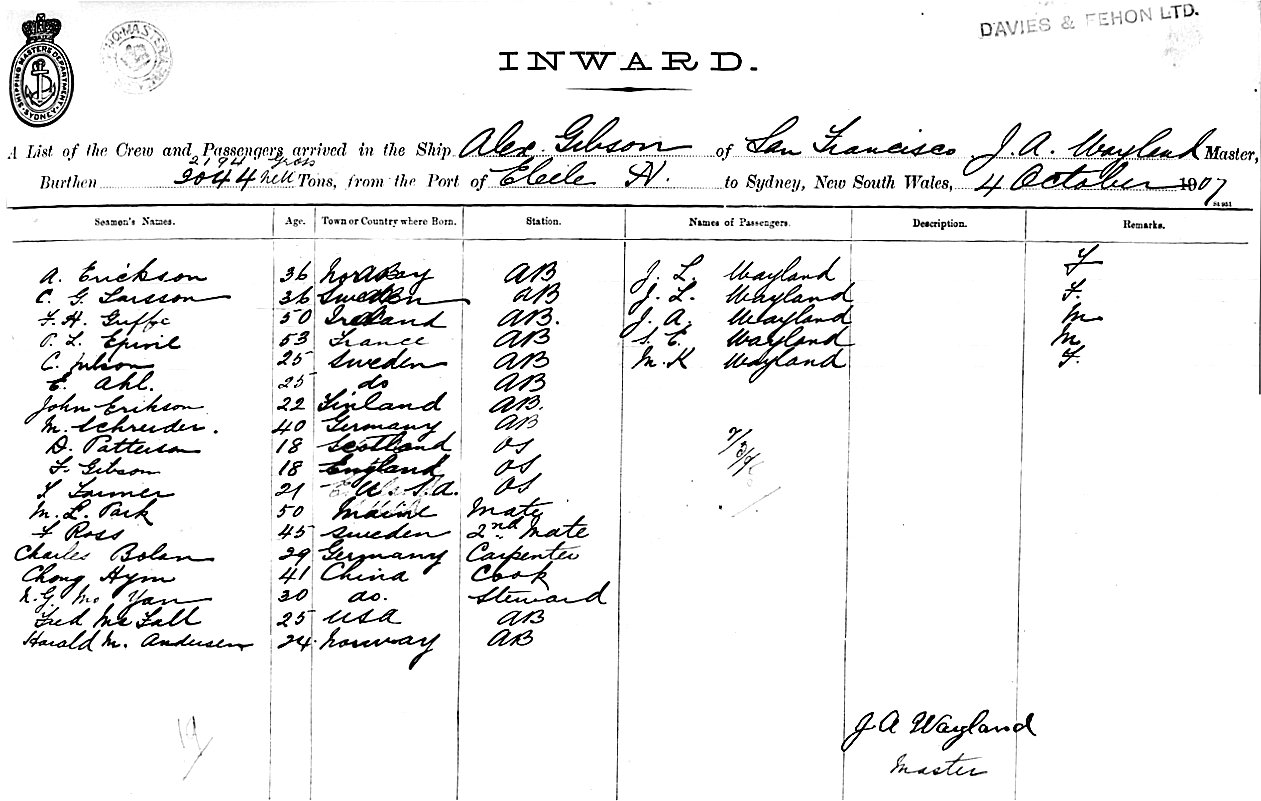 DAVIES & FEHON LTD.
SHIPPING MASTERS DEPARTMENT
SYDNEY
INWARD.
A List of the Crew and Passengers arrived in the Ship Alex. Gibson of San Francisco J. A. Wayland Master,
2194 Gross
Burthen 2044 nett Tons, from the Port of to Sydney, New South Wales, 4 October 1907
Seamen's Names. Age. Town or Country where Born. Station. Names of Passengers. Description. Remarks.
A. Erickson 36 Norway AB J. L. Wayland F
C. G. Larsson 36 Sweden AB J. L. Wayland F.
F. H. 50 Ireland AB. J. A. Wayland M
P. L. 53 France AB S. E. Wayland M
C. 25 Sweden AB M. K Wayland F.
E. Ahl. 25 do AB
John Erikson 22 Finland AB.
M. Schreider. 40 Germany AB
D. Patterson 18 Scotland OS
F. Gibson 18 England OS
Larmer 21 U.S.A. OS
M. L. Park 50 Maine Mate
F Ross 45 Sweden 2nd Mate
Charles Bolan 29 Germany Carpenter
Chong Hym 41 China Cook
N. G. Mo Yan 30 do. Steward
Fred McFall 25 USA AB
Harald M. Andersen 24 Norway AB
J A Wayland
Master